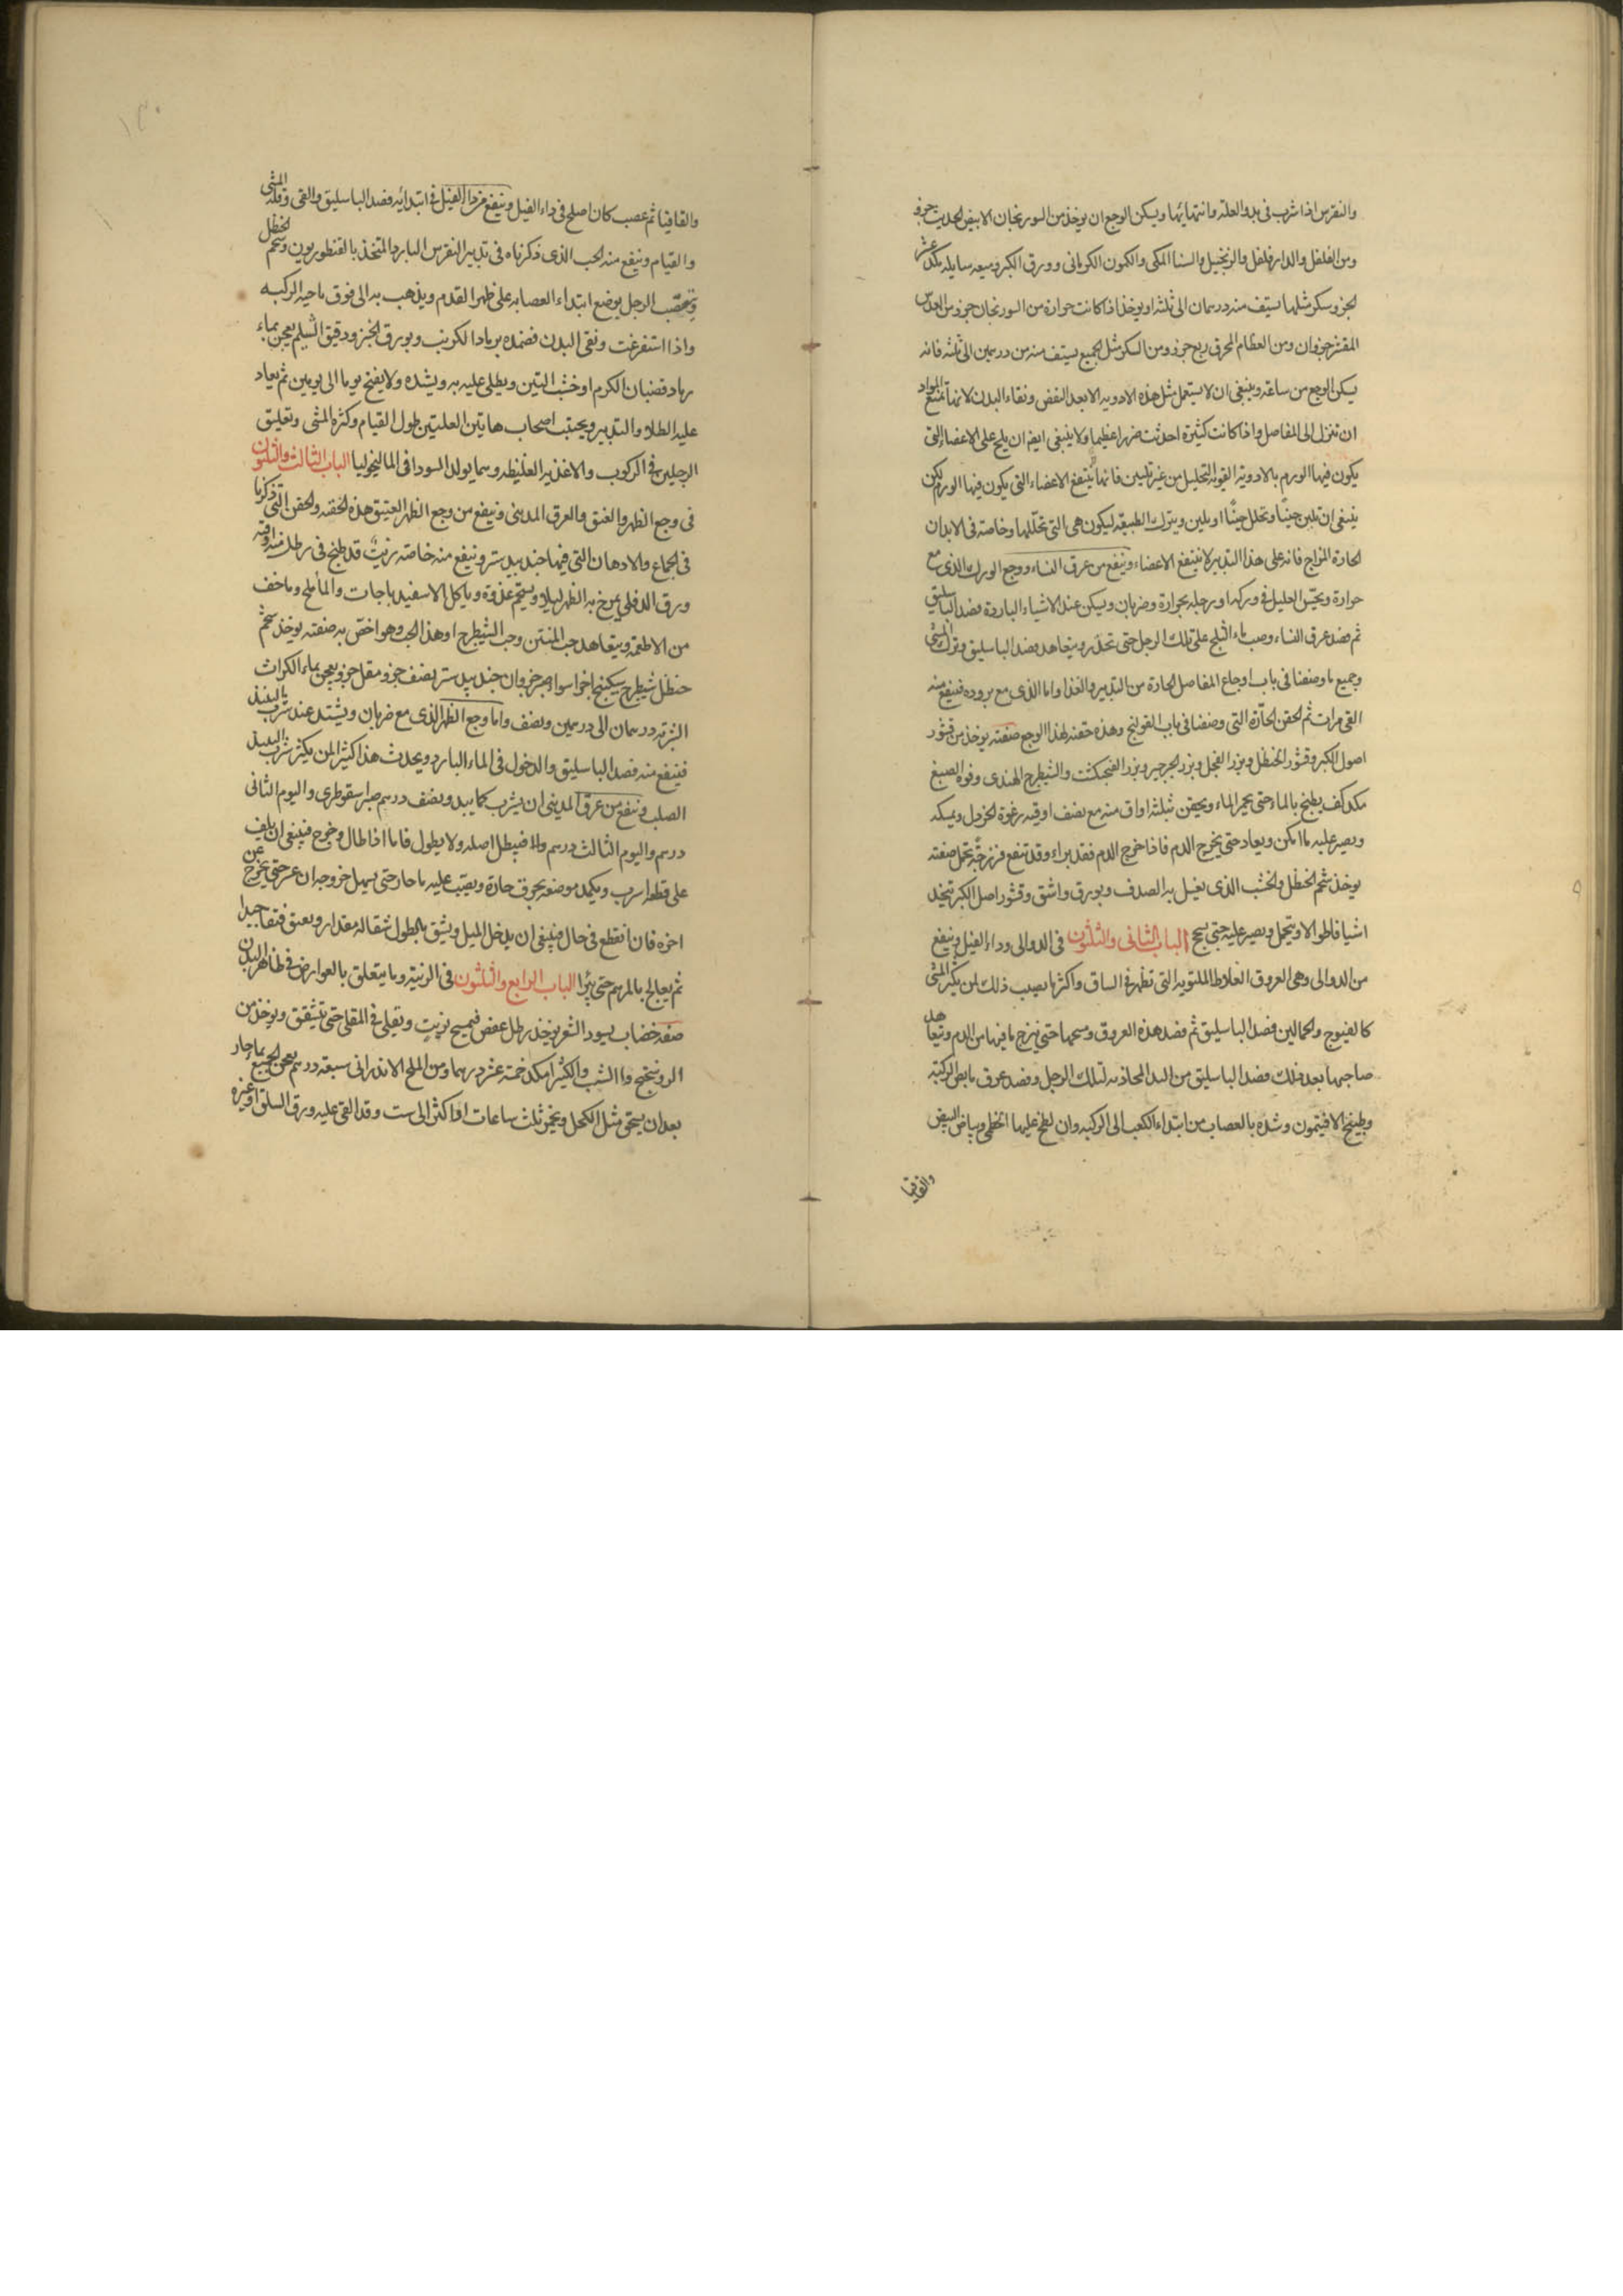 والنقرس اذا شرب فى بدو العلة وانتهائها ويسكن الوجع ان يوخذ من السورنجان الابيض الحديث جزو
ومن الفلفل والدارفلفل والزنجبيل والسنا المكى والكمون الكرمانى وورق الكبر وميعه سايله مكد عشر
الجزو سكر مثلها يستف منه درهمان الى ثلثه او يوخذ اذا كانت حرارة من السورنجان جزو من العدس
المقشر جزوان ومن العظام المحرق ربع جزو ومن السكر مثل الجميع يستف منه من درهمين الى ثلثه فانه
يسكن الوجع من ساعته وينبغى ان لا يستعمل مثل هذه الادويه الا بعد النفض ونقاء البدن لانها تمنع المواد
ان تنزل الى المفاصل واذا كانت كثيرة احدثت ضررا عظيما ولا ينبغى ايضا ان يلح على الاعضاء التى
يكون فيها الورم بالادوية القوية التحليل من غير تليين فانها ينتفع الاعضاء التى يكون فيها الورم لكن
ينبغى ان تلين حينا وتحلل حينا او يلين ويترك الطبيعه ليكون هى التى تحللها وخاصة فى الابدان
الحارة المزاج فانه على هذا التدبير لا ينتفع الاعضاء وينفع من عرق النساء ووجع الورك الذى مع
حرارة ويحس العليل فى وركه او رجله بحرارة وضربان ويسكن عند الاشياء الباردة فصد الباسليق
ثم فصد عرق النساء وصب ماء الثلج على تلك الرجل حتى تخدر ويتعاهد فصد الباسليق وترك المشى
وجميع ما وصفنا فى باب اوجاع المفاصل الحارة من التدبير والغذا واما الذى مع بروده فينفع منه
القى مرات ثم الحقن الحارة التى وصفنا فى باب القولنج وهذه حقنه لهذا الوجع صفته يوخذ من قشور
اصول الكبر وقشور الحنظل وبزر الفجل وبزر الجرجير وبزر الفنجنكشت والشيطرج الهندى وفوه الصبغ
مكد كف يطبخ بالماء حتى يحمر الماء ويحقن بثلثة اواق منه مع نصف اوقيه رغوة الخردل ويمسكه
ويصبر عليه ما امكن ويعاد حتى يخرج الدم فاذا خرج الدم فقد براء وقد تنفع فرزجة تحمل صفته
يوخذ شحم الحنظل والخشب الذى يغسل به الصدف وبورق واشق وقشور اصل الكبر يتخذ
اشيافا طوالا ويتحمل ويصبر عليه حتى يسحج الباب الثانى والثلثون فى الدوالى وداء الفيل وينفع
من الدوالى وهى العروق الغلاظ الملتويه التى تظهر فى الساق واكثر ما يصيب ذلك لمن يكثر المشى
كالفيوج والحمالين فصد الباسليق ثم فصد هذه العروق ومسحها حتى ينزح ما فيها من الدم ويتعاهد
صاحبها بعد ذلك فصد الباسليق من اليد المحاذيه لتلك الرجل وفصد عرق مابض الركبة
وطبيخ الافتيمون وشده بالعصاب من ابتداء الكعب الى الركبه وان لطخ عليها الخطمى وبياض البيض
والقاقيا
والقاقيا ثم عصب كان اصلح فى داء الفيل وينفع من داء الفيل فى ابتدائه فصد الباسليق والقى وقله المشى
والقيام وينفع منه الحب الذى ذكرناه فى تدبير النقرس البارد المتخذ بالقنطوريون وشحم الحنظل
وتعصب الرجل بوضع ابتداء العصابه على ظهر القدم ويذهب به الى فوق ناحية الركبه
واذا استفرغت ونقى البدن فضمده برماد الكرنب وبورق الخبز ودقيق الشيلم يعجن بماء
رماد قضبان الكرم او خشب التين ويطلى عليه به ويشده ولا يفتح يوما الى يومين ثم يعاد
عليه الطلا والتدبير ويجتنب اصحاب هاتين العلتين طول القيام وكثره المشى وتعليق
الرجلين فى الركوب والاغذيه الغليظه وما يولد السودا فى الماليخوليا الباب الثالث والثلثون
فى وجع الظهر والعنق والعرق المدينى وينفع من وجع الظهر العتيق هذه الحقنه والحقن التى ذكرنا
فى الجماع والادهان التى فيها جندبيدستر وينفع منه خاصة زيت قد طبخ فى رطل منه اوقيه
ورق الدفلى يمرخ به الظهر ليلا ويستحم غدوة وياكل الاسفيدباجات والمألح وما خف
من الاطعمة ويتعاهد حب المنتن وحب الشيطرج او هذا الحب وهو اخص به صفته يوخذ شحم
حنظل شيطرج سكبينج اجزا سواء صبر جزوان جندبيدستر نصف جزو مقل جزو يعجن بماء الكراث
الشربه درهمان الى درهمين ونصف واما وجع الظهر الذى مع ضربان ويشتد عند شرب النبيذ
فينفع منه فصد الباسليق والدخول فى الماء البارد ويحدث هذا كثيرا لمن يكثر شرب النبيذ
الصلب وينفع من عرق المدينى ان يشرب كما يبدو نصف درهم صبر سقوطرى واليوم الثانى
درهم واليوم الثالث درهم والا فيبطل اصله ولا يطول فاما اذا طال وخرج فينبغى ان يلف
على قطعه اسرب ويكمد موضعه بخرق حارة ويصب عليه ماء حار حتى يسهل خروجه ان عسر حتى يخرج عن
اخره فان انقطع فى حال فينبغى ان يدخل الميل ويشق بالطول شقا له مقدار ويعتق فتقا جيدا
ثم يعالج بالمرهم حتى يبرا الباب الرابع والثلثون فى الزينة وما يتعلق بالعوارض فى ظاهر البدن
صفه خضاب يسود الشعر يوخذ رطل عفص فيمسح بزيت ويقلى فى المقلى حتى يتشقق ويوخذ من
الروسختج واا الشب والكثيرا مكد خمسة عشر درهما ومن الملح الاندرانى سبعة درهم يعجن الجميع بما حار
بعد ان يسحق مثل الكحل ويخمر ثلث ساعات او اكثر الى ست وقد القى عليه ورق السلق او غيره